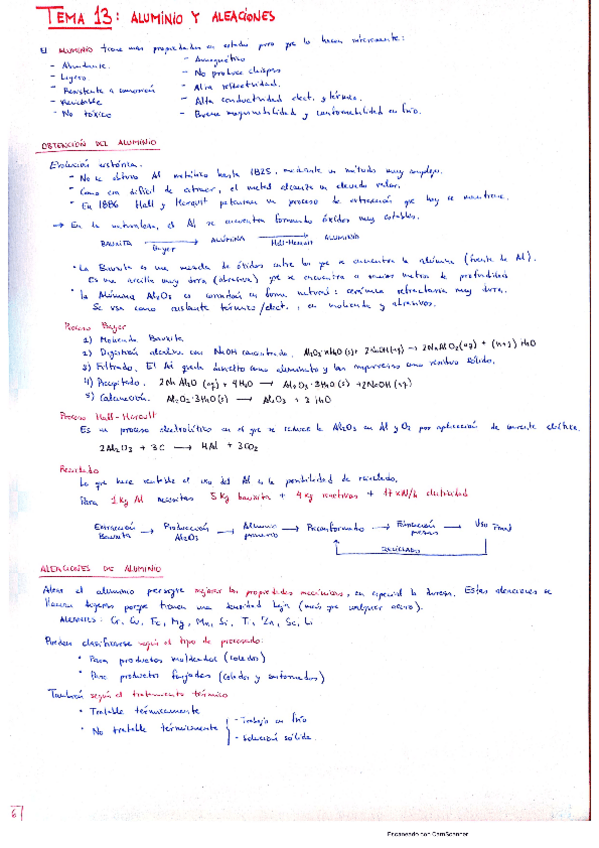 TEMA 13: ALUMINIO Y ALEACIONES
El ALUMINIO tiene unas propiedades en estado puro que lo hacen interesante:
- Abundante.
- Ligero.
- Resistente a corrosión
- Reciclable
- No tóxico
- Amagnético
- No produce chispas
- Alta reflectividad.
- Alta conductividad elect. y térmica.
- Buena maquinabilidad y conformabilidad en frío.
OBTENCIÓN DEL ALUMINIO
Evolución histórica.
- No se obtuvo Al metálico hasta 1825, mediante un método muy complejo.
- Como era difícil de extraer, el metal alcanza un elevado valor.
- En 1886 Hall y Heroult patentaron un proceso de extracción que hoy se mantiene.
→ En la naturaleza, el Al se encuentra formando óxidos muy estables.
BAUXITA → Bayer ALÚMINA → Hall-Heroult ALUMINIO
· La Bauxita es una mezcla de óxidos entre los que se encuentra la alúmina (fuente de Al).
Es una arcilla muy dura (abrasiva) que se encuentra a varios metros de profundidad
· La Alúmina Al2O3 es corindón en forma natural: cerámica refractaria muy dura.
Se usa como aislante térmico/elect., en molienda y abrasivos.
Proceso Bayer
1) Molienda Bauxita
2) Digestión alcalina con NaOH concentrado. Al2O3·nH2O(s) + 2NaOH(aq) → 2NaAlO2(aq) + (n+1) H2O
3) Filtrado. El Al queda disuelto como aluminato y las impurezas como residuo sólido.
4) Precipitado. 2NaAlO2 (aq) + 4H2O → Al2O3·3H2O (s) + 2NaOH (aq)
5) Calcinación. Al2O3·3H2O(s) → Al2O3 + 3 H2O
Proceso Hall-Heroult
Es un proceso electrolítico en el que se reduce la Al2O3 en Al y O2 por aplicación de corriente eléctrica.
2Al2O3 + 3C → 4Al + 3CO2
Reciclado
Lo que hace rentable el uso del Al es la posibilidad de reciclado.
Para 1 kg Al necesitas 5 kg bauxita + 4 kg reactivos + 17 kW/h electricidad
Extracción Bauxita → Producción Al2O3 → Aluminio primario → Preconformado → Fabricación piezas → Uso Final
RECICLADO
ALEACIONES DE ALUMINIO
Alear el aluminio persigue mejorar las propiedades mecánicas, en especial la dureza. Estas aleaciones se
llaman ligeras porque tienen una densidad baja (menos que cualquier acero).
ALEANTES: Cr, Cu, Fe, Mg, Mn, Si, Ti, Zn, Sc, Li
Pueden clasificarse según el tipo de procesado:
· Para productos moldeados (colados)
· Para productos forjados (colados y conformados)
También según el tratamiento térmico
· Tratable térmicamente
· No tratable térmicamente
- Trabajo en frío
- Solución sólida.
6
Escaneado con CamScanner